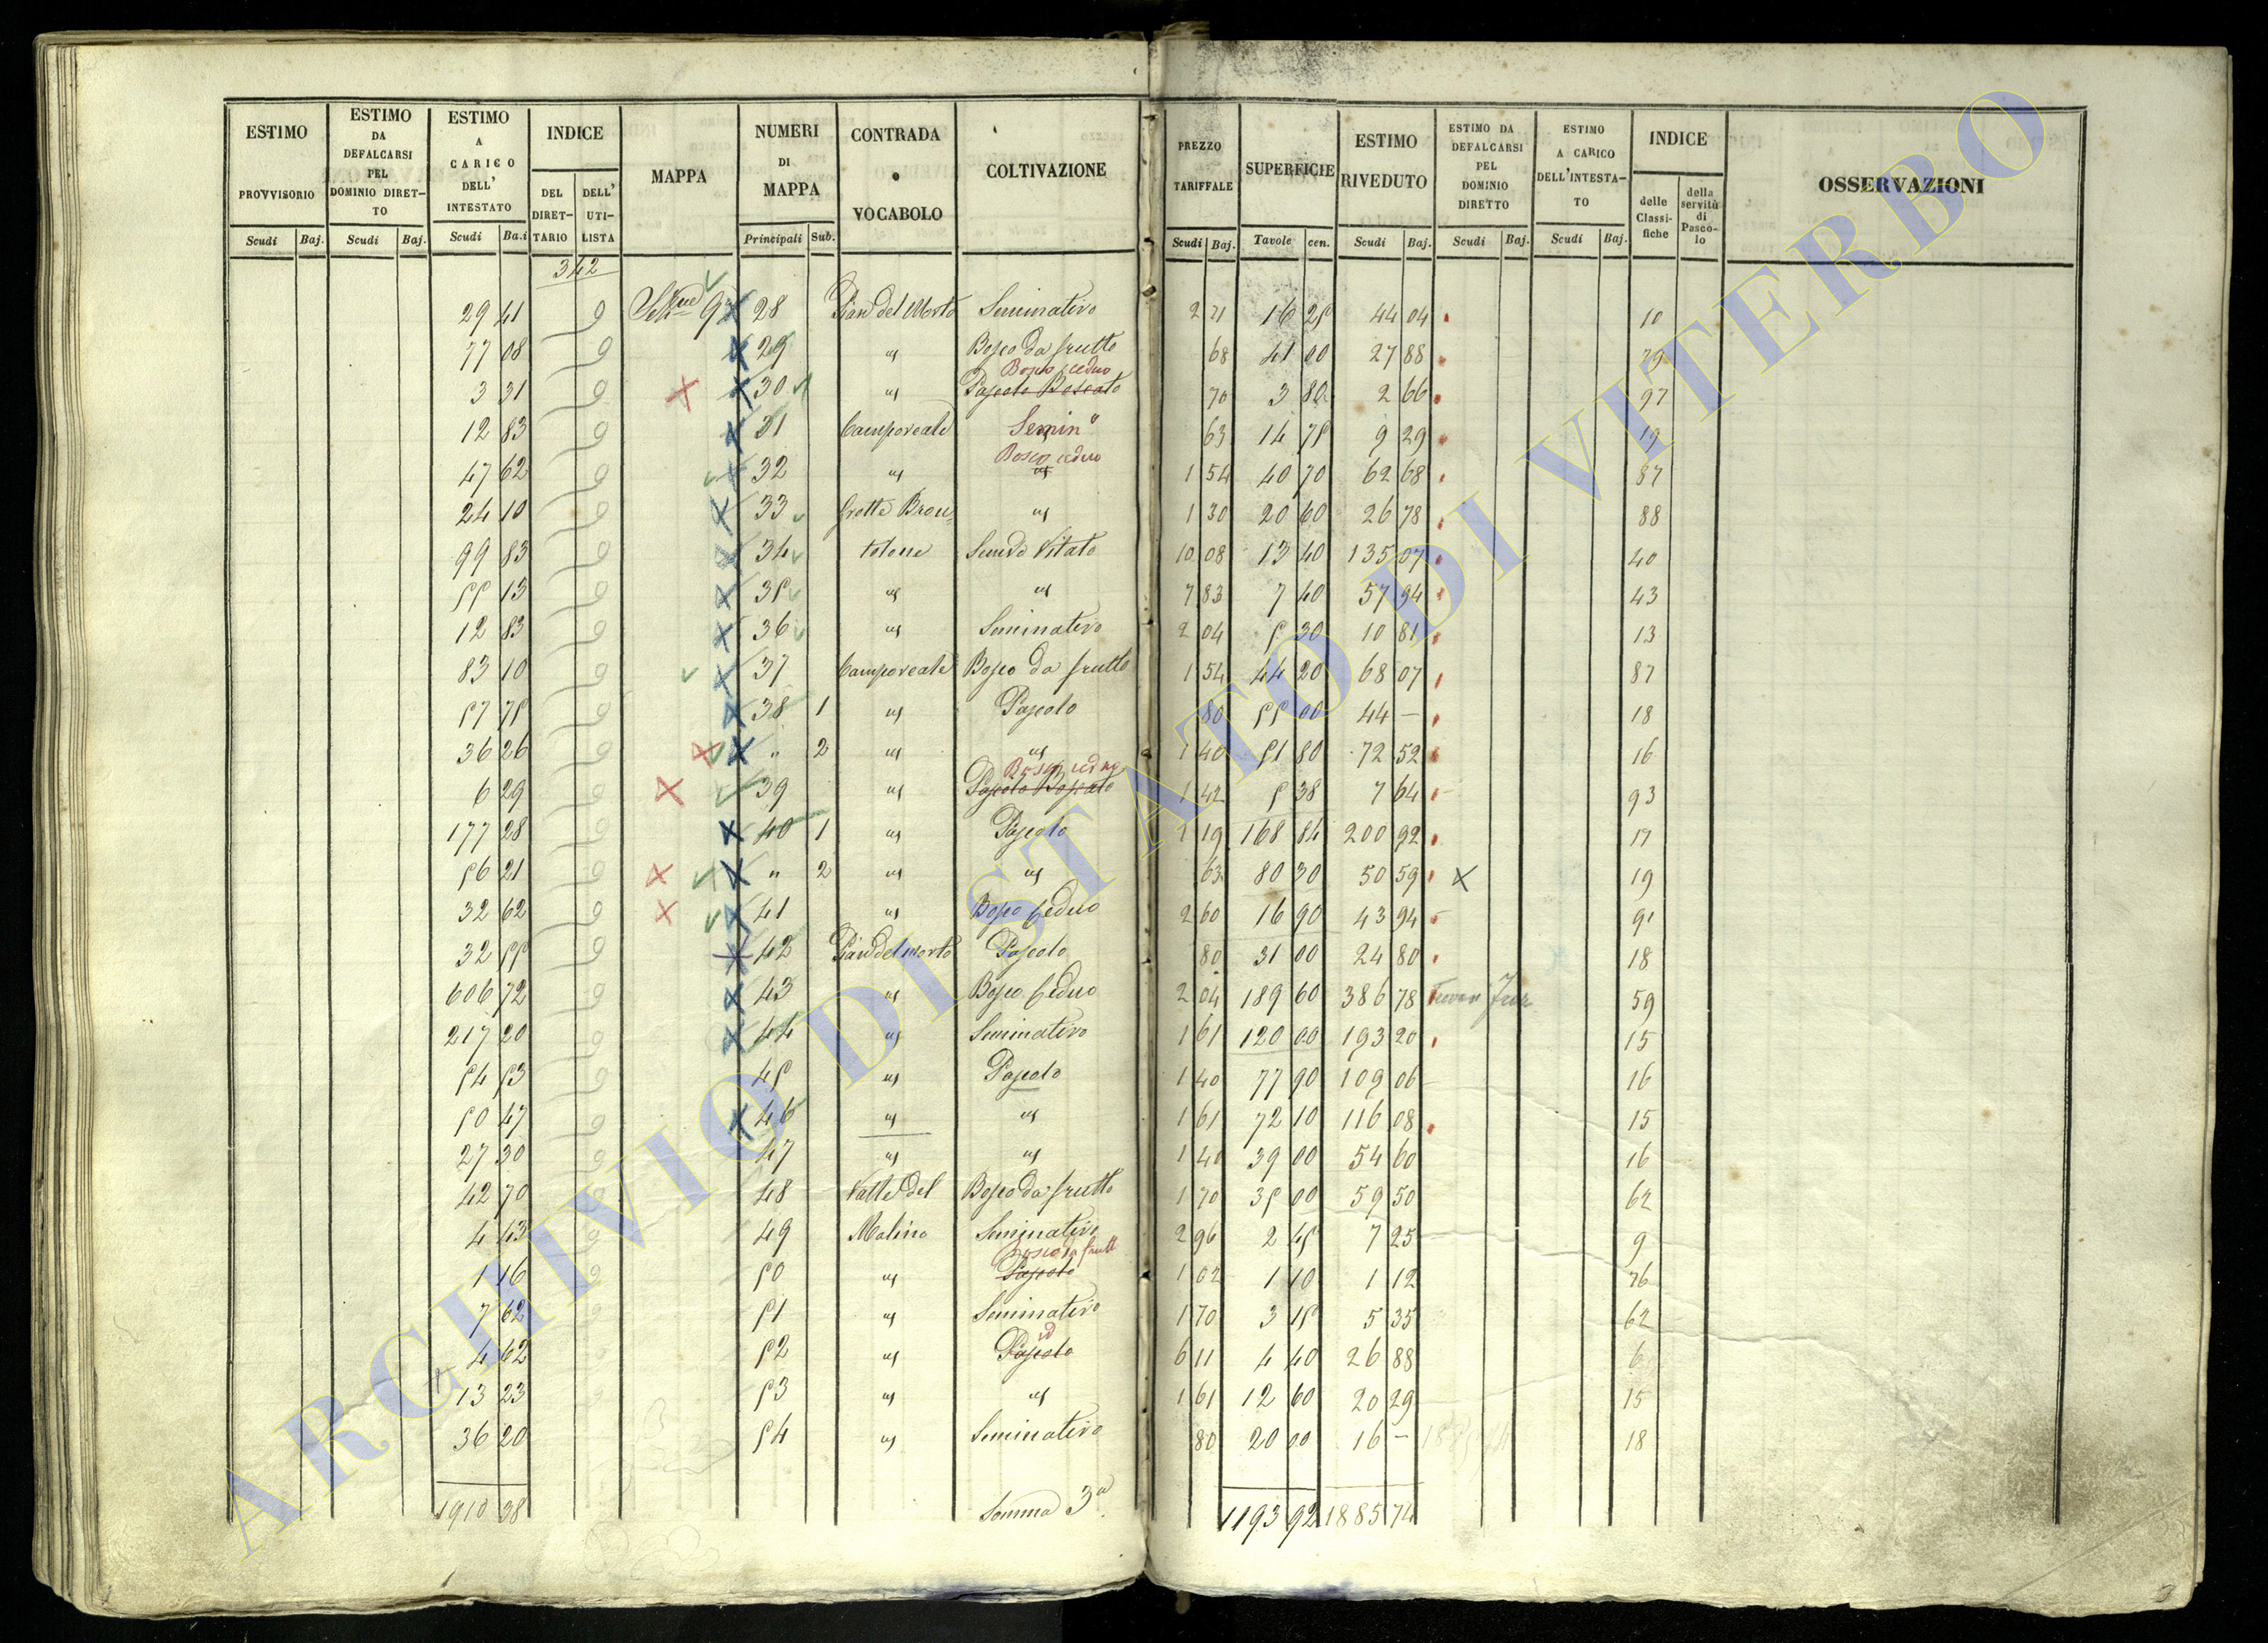 ESTIMO PROVVISORIO | ESTIMO DA DEFALCARSI PEL DOMINIO DIRETTO | ESTIMO A CARICO DELL' INTESTATO | INDICE | MAPPA | NUMERI DI MAPPA | CONTRADA O VOCABOLO | COLTIVAZIONE | PREZZO TARIFFALE | SUPERFICIE | ESTIMO RIVEDUTO | ESTIMO DA DEFALCARSI PEL DOMINIO DIRETTO | ESTIMO A CARICO DELL'INTESTATO | INDICE | OSSERVAZIONI
DEL DIRETTARIO | DELL' UTILISTA | delle Classifiche | della servitù di Pascolo
Scudi | Baj. | Scudi | Baj. | Scudi | Ba.i | Principali | Sub. | Scudi | Baj. | Tavole | cen. | Scudi | Baj. | Scudi | Baj. | Scudi | Baj.
342
29 41 | 28 | Pian del Morto | Seminativo | 2 71 | 16 25 | 44 04 | 10
77 08 | 29 | " | Bosco da frutto | 68 | 41 00 | 27 88 | 79
Bosco ceduo
3 31 | 30 | " | Pascolo Boscato | 70 | 3 80 | 2 66 | 97
12 83 | 31 | Camporeale | Semin° | 63 | 14 75 | 9 29 | 19
Bosco ceduo
47 62 | 32 | " | " | 1 54 | 40 70 | 62 68 | 87
24 10 | 33 | Grotte Bron= | " | 1 30 | 20 60 | 26 78 | 88
99 83 | 34 | tolone | Semvo Vitato | 10 08 | 13 40 | 135 07 | 40
55 13 | 35 | " | " | 7 83 | 7 40 | 57 94 | 43
12 83 | 36 | " | Seminativo | 2 04 | 5 30 | 10 81 | 13
83 10 | 37 | Camporeale | Bosco da frutto | 1 54 | 44 20 | 68 07 | 87
57 75 | 38 | 1 | " | Pascolo | 80 | 55 00 | 44 — | 18
36 26 | " | 2 | " | " | 1 40 | 51 80 | 72 52 | 16
Bosco ceduo
6 29 | 39 | " | Pascolo Boscato | 1 42 | 5 38 | 7 64 | 93
177 28 | 40 | 1 | " | Pascolo | 1 19 | 168 84 | 200 92 | 17
56 21 | " | 2 | " | " | 63 | 80 30 | 50 59 | 19
32 62 | 41 | " | Bosco Ceduo | 2 60 | 16 90 | 43 94 | 91
32 55 | 42 | Pian del morto | Pascolo | 80 | 31 00 | 24 80 | 18
606 72 | 43 | " | Bosco Ceduo | 2 04 | 189 60 | 386 78 | 59
217 20 | 44 | " | Seminativo | 1 61 | 120 00 | 193 20 | 15
54 53 | 45 | " | Pascolo | 1 40 | 77 90 | 109 06 | 16
50 47 | 46 | " | " | 1 61 | 72 10 | 116 08 | 15
27 30 | 47 | " | " | 1 40 | 39 00 | 54 60 | 16
42 70 | 48 | Valle del | Bosco da frutto | 1 70 | 35 00 | 59 50 | 62
4 43 | 49 | Molino | Seminativo | 2 96 | 2 45 | 7 25 | 9
Bosco da frutt
1 16 | 50 | " | Pascolo | 1 02 | 1 10 | 1 12 | 76
7 62 | 51 | " | Seminativo | 1 70 | 3 15 | 5 35 | 62
id
4 62 | 52 | " | Pascolo | 6 11 | 4 40 | 26 88 | 6
13 23 | 53 | " | " | 1 61 | 12 60 | 20 29 | 15
36 20 | 54 | " | Seminativo | 80 | 20 00 | 16 — | 18
1910 38 | Somma 3a. | 1193 92 | 1885 74
ARCHIVIO DI STATO DI VITERBO